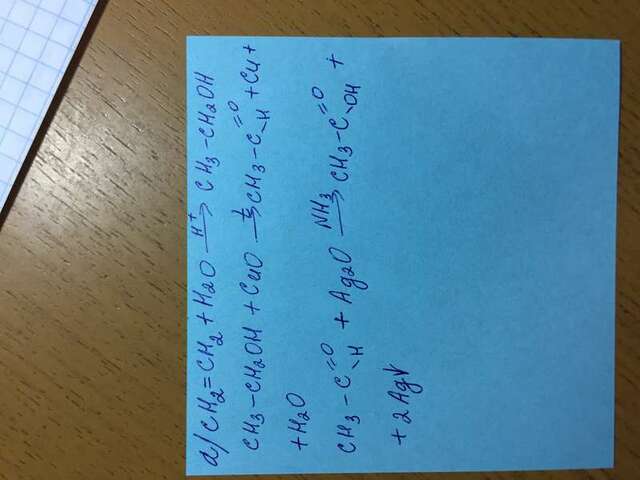 a) CH2=CH2 + H2O —H⁺→ CH3–CH2OH
CH3–CH2OH + CuO —t→ CH3–C(=O)–H + Cu +
+ H2O
CH3–C(=O)–H + Ag2O —NH3→ CH3–C(=O)–OH +
+ 2Ag↓